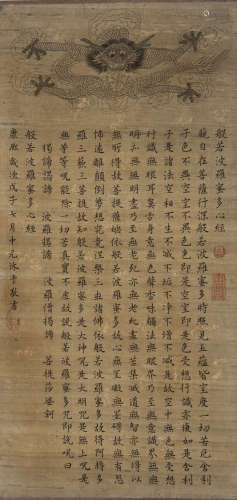 般若波羅蜜多心經
觀自在菩薩行深般若波羅蜜多時照見五蘊皆空度一切苦厄舍利
子色不異空空不異色色即是空空即是色受想行識亦復如是舍利
子是諸法空相不生不滅不垢不淨不增不減是故空中無色無受想
行識無眼耳鼻舌身意無色聲香味觸法無眼界乃至無意識界無無
明亦無無明盡乃至無老死亦無老死盡無苦集滅道無智亦無得以
無所得故菩提薩埵依般若波羅蜜多故心無罣礙無罣礙故無有恐
怖遠離顛倒夢想究竟涅槃三世諸佛依般若波羅蜜多故得阿耨多
羅三藐三菩提故知般若波羅蜜多是大神咒是大明咒是無上咒是
無等等咒能除一切苦真實不虛故說般若波羅蜜多咒即說咒曰
揭諦揭諦 波羅揭諦 波羅僧揭諦 菩提莎婆訶
般若波羅蜜多心經
康熙歲次戊子七月中元沐手敬書